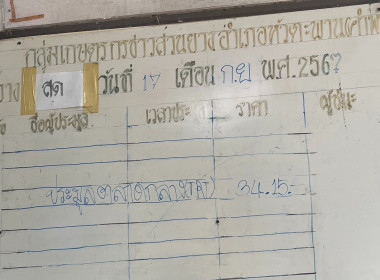 กลุ่มเกษตรกรชาวสวนยางอำเภอหัวตะพาน
ยาง สด วันที่ 17 เดือน กย พ.ศ.2567
ชื่อผู้ประมูล เวลาประ ราคา ผู้ชนะ
ประมูลตลาดกลาง 34.15.-